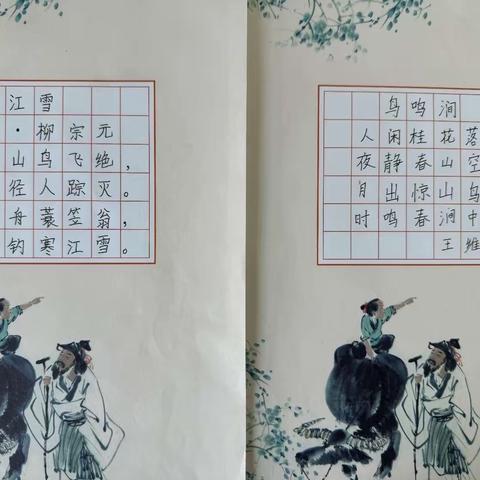 江雪
·柳宗元
山鸟飞绝，
径人踪灭。
舟蓑笠翁，
钓寒江雪。
鸟鸣涧
人闲桂花落
夜静春山空
月出惊山鸟
时鸣春涧中
王维